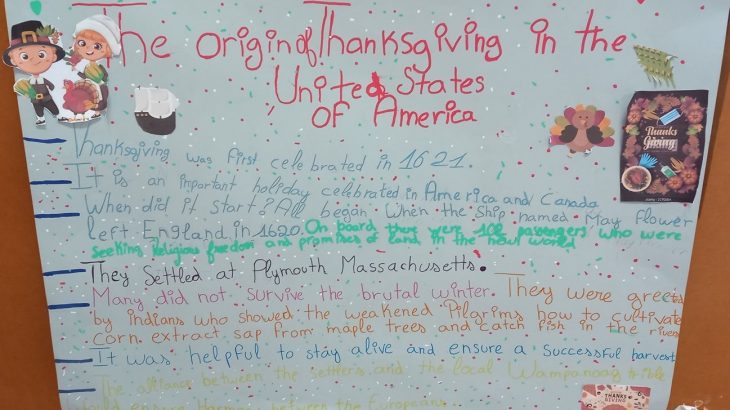 The origin of Thanksgiving in the
United States
Of America
Thanksgiving was first celebrated in 1621.
It is an inportant holiday celebrated in America and Canada
When did it start? All began When the Ship named May flower
left England in 1620. On board there were 102 passengers who were
seeking religious freedom and promises of land in the new world
They Settled at Plymouth Massachusetts.
Many did not survive the brutal winter. They were greets
by indians who showed the weakened Pilgrims how to cultivate
corn extract sap from maple trees and catch fish in the rivers
It was helpful to stay alive and ensure a successful harvest
The alliance between the settlers and the local Wampanoag tribe
between the Europeans
Thanks
Giving
THANKS
GIVING